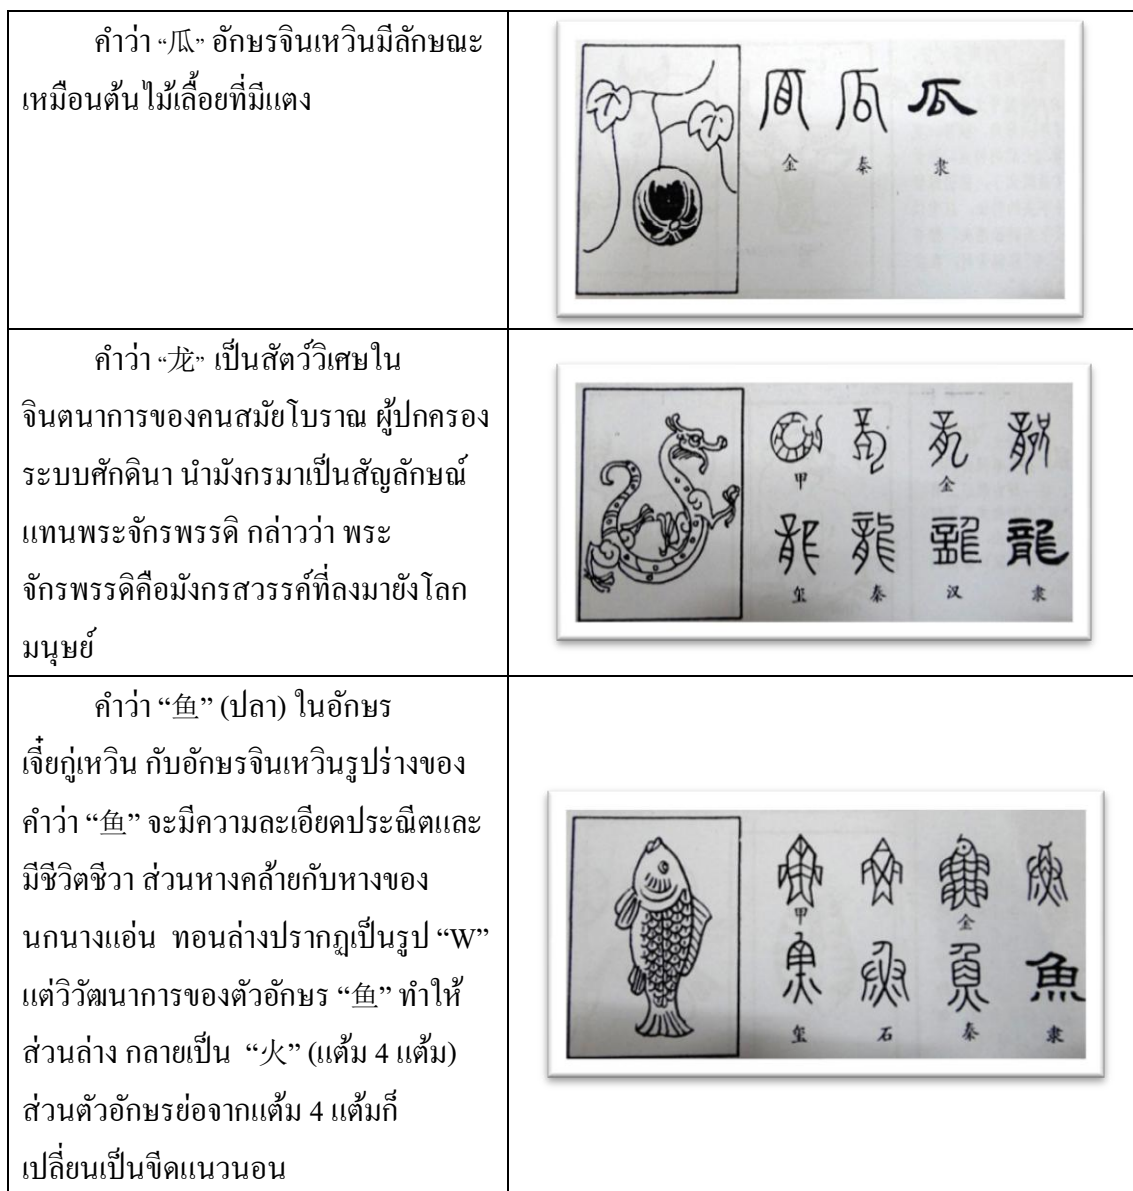 คำว่า “瓜” อักษรจินเหวินมีลักษณะ
เหมือนต้นไม้เลื้อยที่มีแตง
金 秦 隶
คำว่า “龙” เป็นสัตว์วิเศษใน
จินตนาการของคนสมัยโบราณ ผู้ปกครอง
ระบบศักดินา นำมังกรมาเป็นสัญลักษณ์
แทนพระจักรพรรดิ กล่าวว่า พระ
จักรพรรดิคือมังกรสวรรค์ที่ลงมายังโลก
มนุษย์
甲 金
玺 秦 汉 隶
คำว่า “鱼” (ปลา) ในอักษร
เจี๋ยกู่เหวิน กับอักษรจินเหวินรูปร่างของ
คำว่า “鱼” จะมีความละเอียดประณีตและ
มีชีวิตชีวา ส่วนหางคล้ายกับหางของ
นกนางแอ่น ทอนล่างปรากฏเป็นรูป “W”
แต่วิวัฒนาการของตัวอักษร “鱼” ทำให้
ส่วนล่าง กลายเป็น “火” (แต้ม 4 แต้ม)
ส่วนตัวอักษรย่อจากแต้ม 4 แต้มก็
เปลี่ยนเป็นขีดแนวนอน
甲 金
玺 石 秦 隶